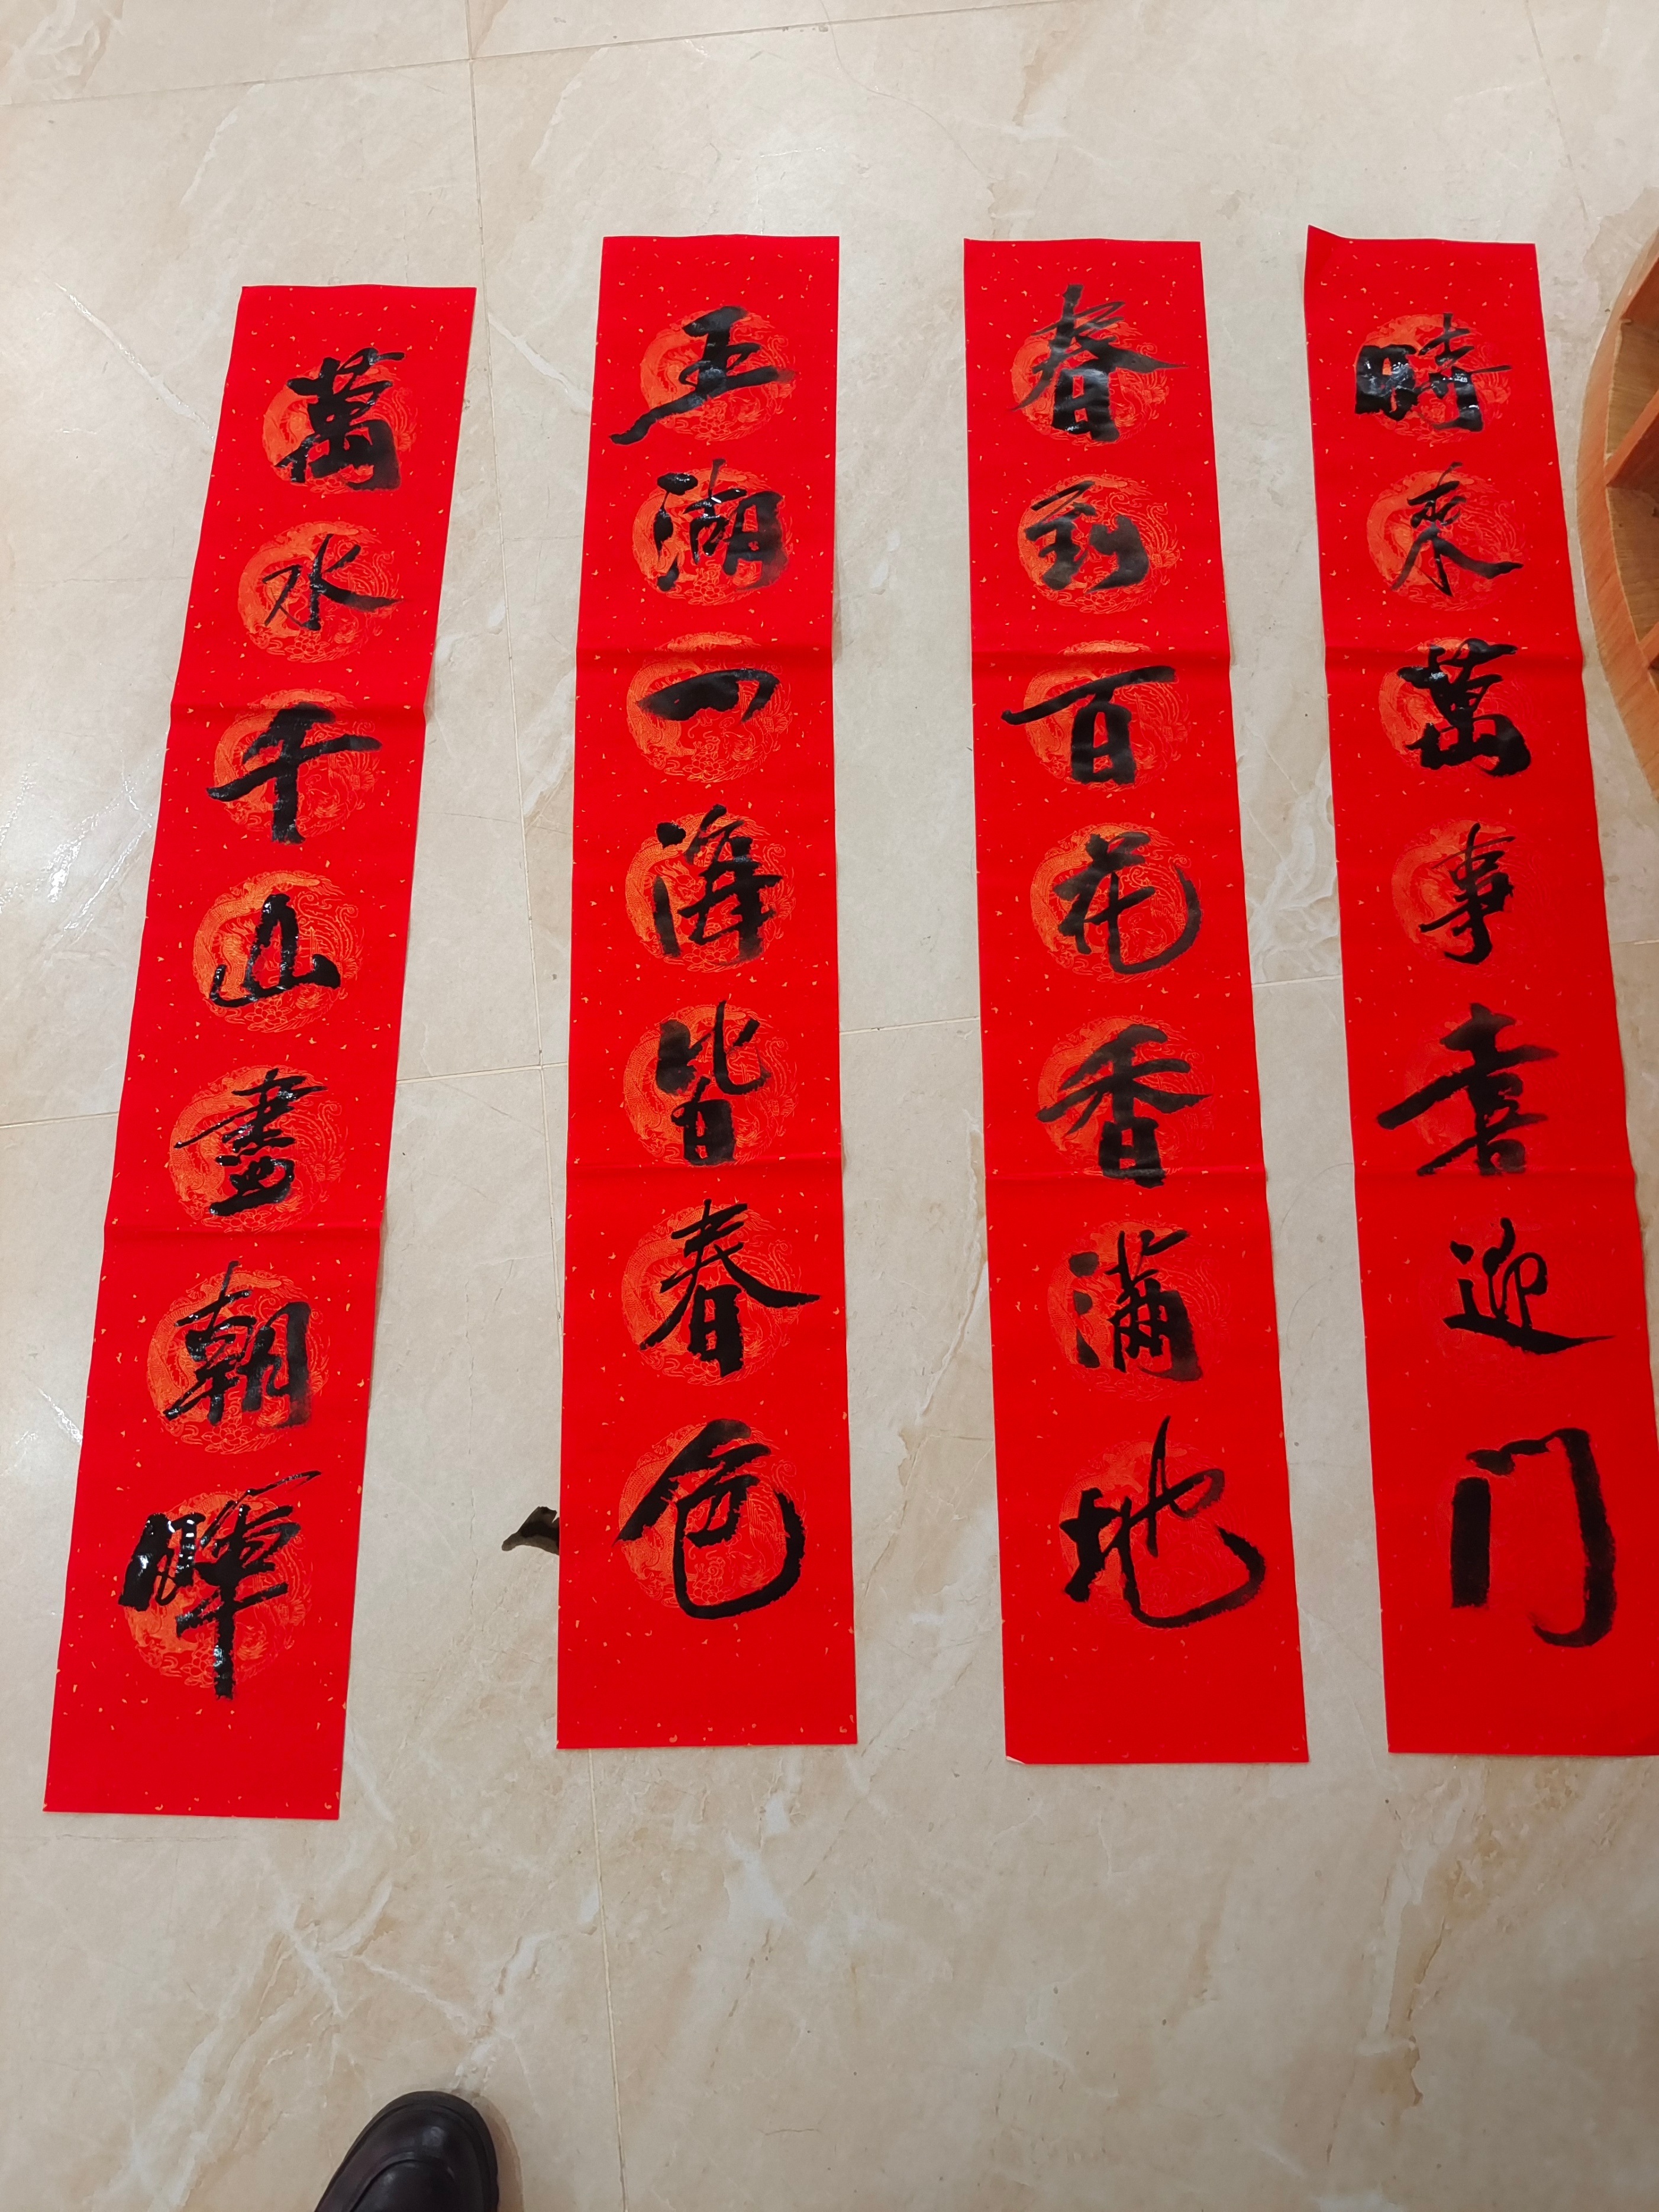 時來萬事喜迎门
春到百花香滿地
五湖四海皆春色
萬水千山盡朝暉